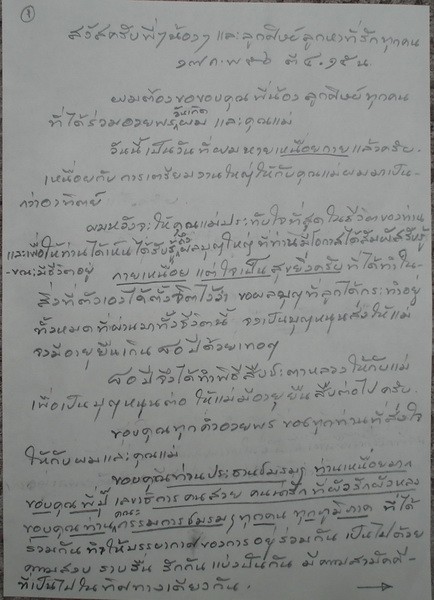 ①
สวัสดีครับพี่ๆน้องๆ และลูกศิษย์ลูกหาที่รักทุกคน
๑๗ ก.พ. ตี ๔.๑๕ น.
ผมต้องขอขอบคุณ พี่น้อง ลูกศิษย์ทุกคน
ที่ได้ร่วมอวยพรวันเกิดผม และคุณแม่
วันนี้เป็นวันที่ผมหายเหนื่อยกายแล้วครับ
เหนื่อยกับการเตรียมงานใหญ่ให้กับคุณแม่ผมมาเป็น-
กว่าอาทิตย์
ผมหวังจะให้คุณแม่ประทับใจที่สุดในชีวิตของท่าน
และเพื่อให้ท่านได้เห็นได้รับรู้ถึงผลบุญใหญ่ที่ท่านมีโอกาสได้สัมผัสรับรู้
-ขณะมีชีวิตอยู่ กายเหนื่อย แต่ใจเป็นสุขยิ่งครับ ที่ได้ทำใน-
สิ่งที่ตัวเองได้ตั้งจิตไว้ว่า ขอผลบุญที่ลูกได้กระทำอยู่
ทั้งหมดที่ผ่านมาทั้งชีวิตนี้ จงเป็นบุญหนุนส่งให้แม่
จงมีอายุยืนเกิน ๘๐ ปีด้วยเทอญ
๘๐ ปี จึงได้ทำพิธีสืบชะตาหลวงให้กับแม่
เพื่อเป็นบุญหนุนต่อ ให้แม่มีอายุยืนสืบต่อไปครับ
ขอบคุณทุกคำอวยพร ของทุกท่านที่ส่งใจ
ให้กับผมและคุณแม่
ขอบคุณท่านประธานชมรมฯ ท่านเหนื่อยมาก
ขอบคุณพี่ปี้ เลขาธิการคนสวย คนน่ารักที่
ขอบคุณท่านคณะกรรมการชมรมฯทุกคน ทุกภูมิภาค ที่ได้
ร่วมกันทำให้บรรยากาศของการอยู่ร่วมกัน เป็นไปด้วย
ความสงบ ราบรื่น รักกัน แบ่งปันกัน มีความสามัคคี-
ที่เป็นไปในทิศทางเดียวกัน. →